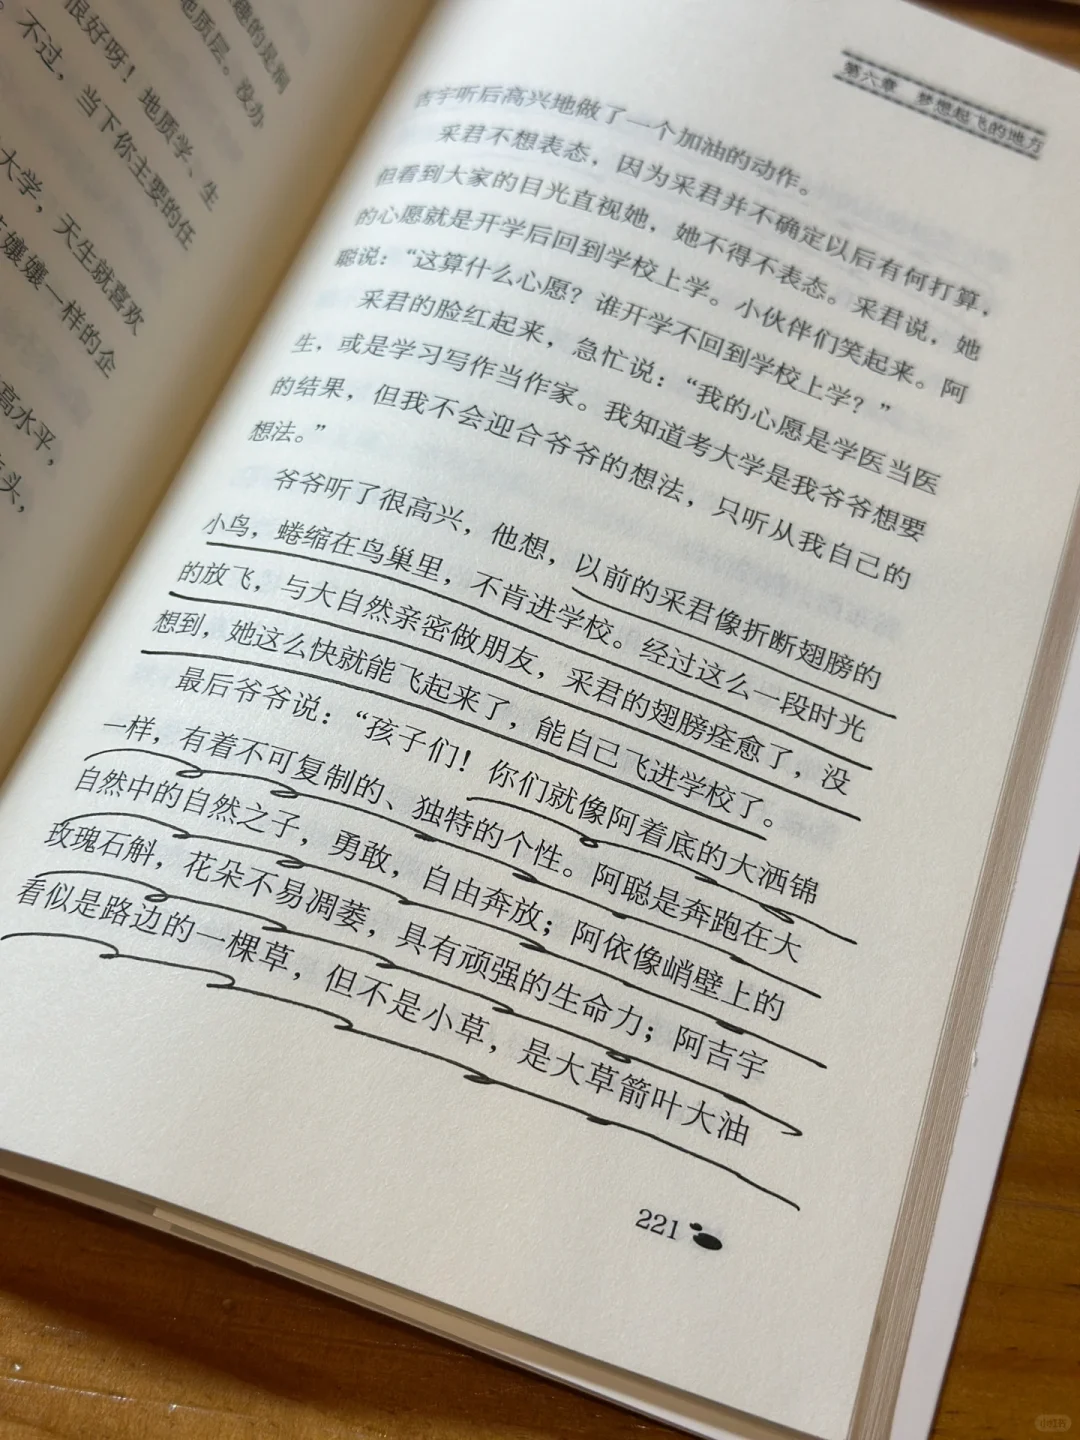 趣的是洞
地质层。没办
很好呀！地质学、生
不过，当下你主要的任
大学，天生就喜欢
孃孃一样的企
高水平，
头，
第六章 梦想起飞的地方
吉宇听后高兴地做了一个加油的动作。
采君不想表态，因为采君并不确定以后有何打算，
但看到大家的目光直视她，她不得不表态。采君说，她
的心愿就是开学后回到学校上学。小伙伴们笑起来。阿
聪说：“这算什么心愿？谁开学不回到学校上学？”
采君的脸红起来，急忙说：“我的心愿是学医当医
生，或是学习写作当作家。我知道考大学是我爷爷想要
的结果，但我不会迎合爷爷的想法，只听从我自己的
想法。”
爷爷听了很高兴，他想，以前的采君像折断翅膀的
小鸟，蜷缩在鸟巢里，不肯进学校。经过这么一段时光
的放飞，与大自然亲密做朋友，采君的翅膀痊愈了，没
想到，她这么快就能飞起来了，能自己飞进学校了。
最后爷爷说：“孩子们！你们就像阿着底的大洒锦
一样，有着不可复制的、独特的个性。阿聪是奔跑在大
自然中的自然之子，勇敢，自由奔放；阿依像峭壁上的
玫瑰石斛，花朵不易凋萎，具有顽强的生命力；阿吉宇
看似是路边的一棵草，但不是小草，是大草箭叶大油
221
小红书